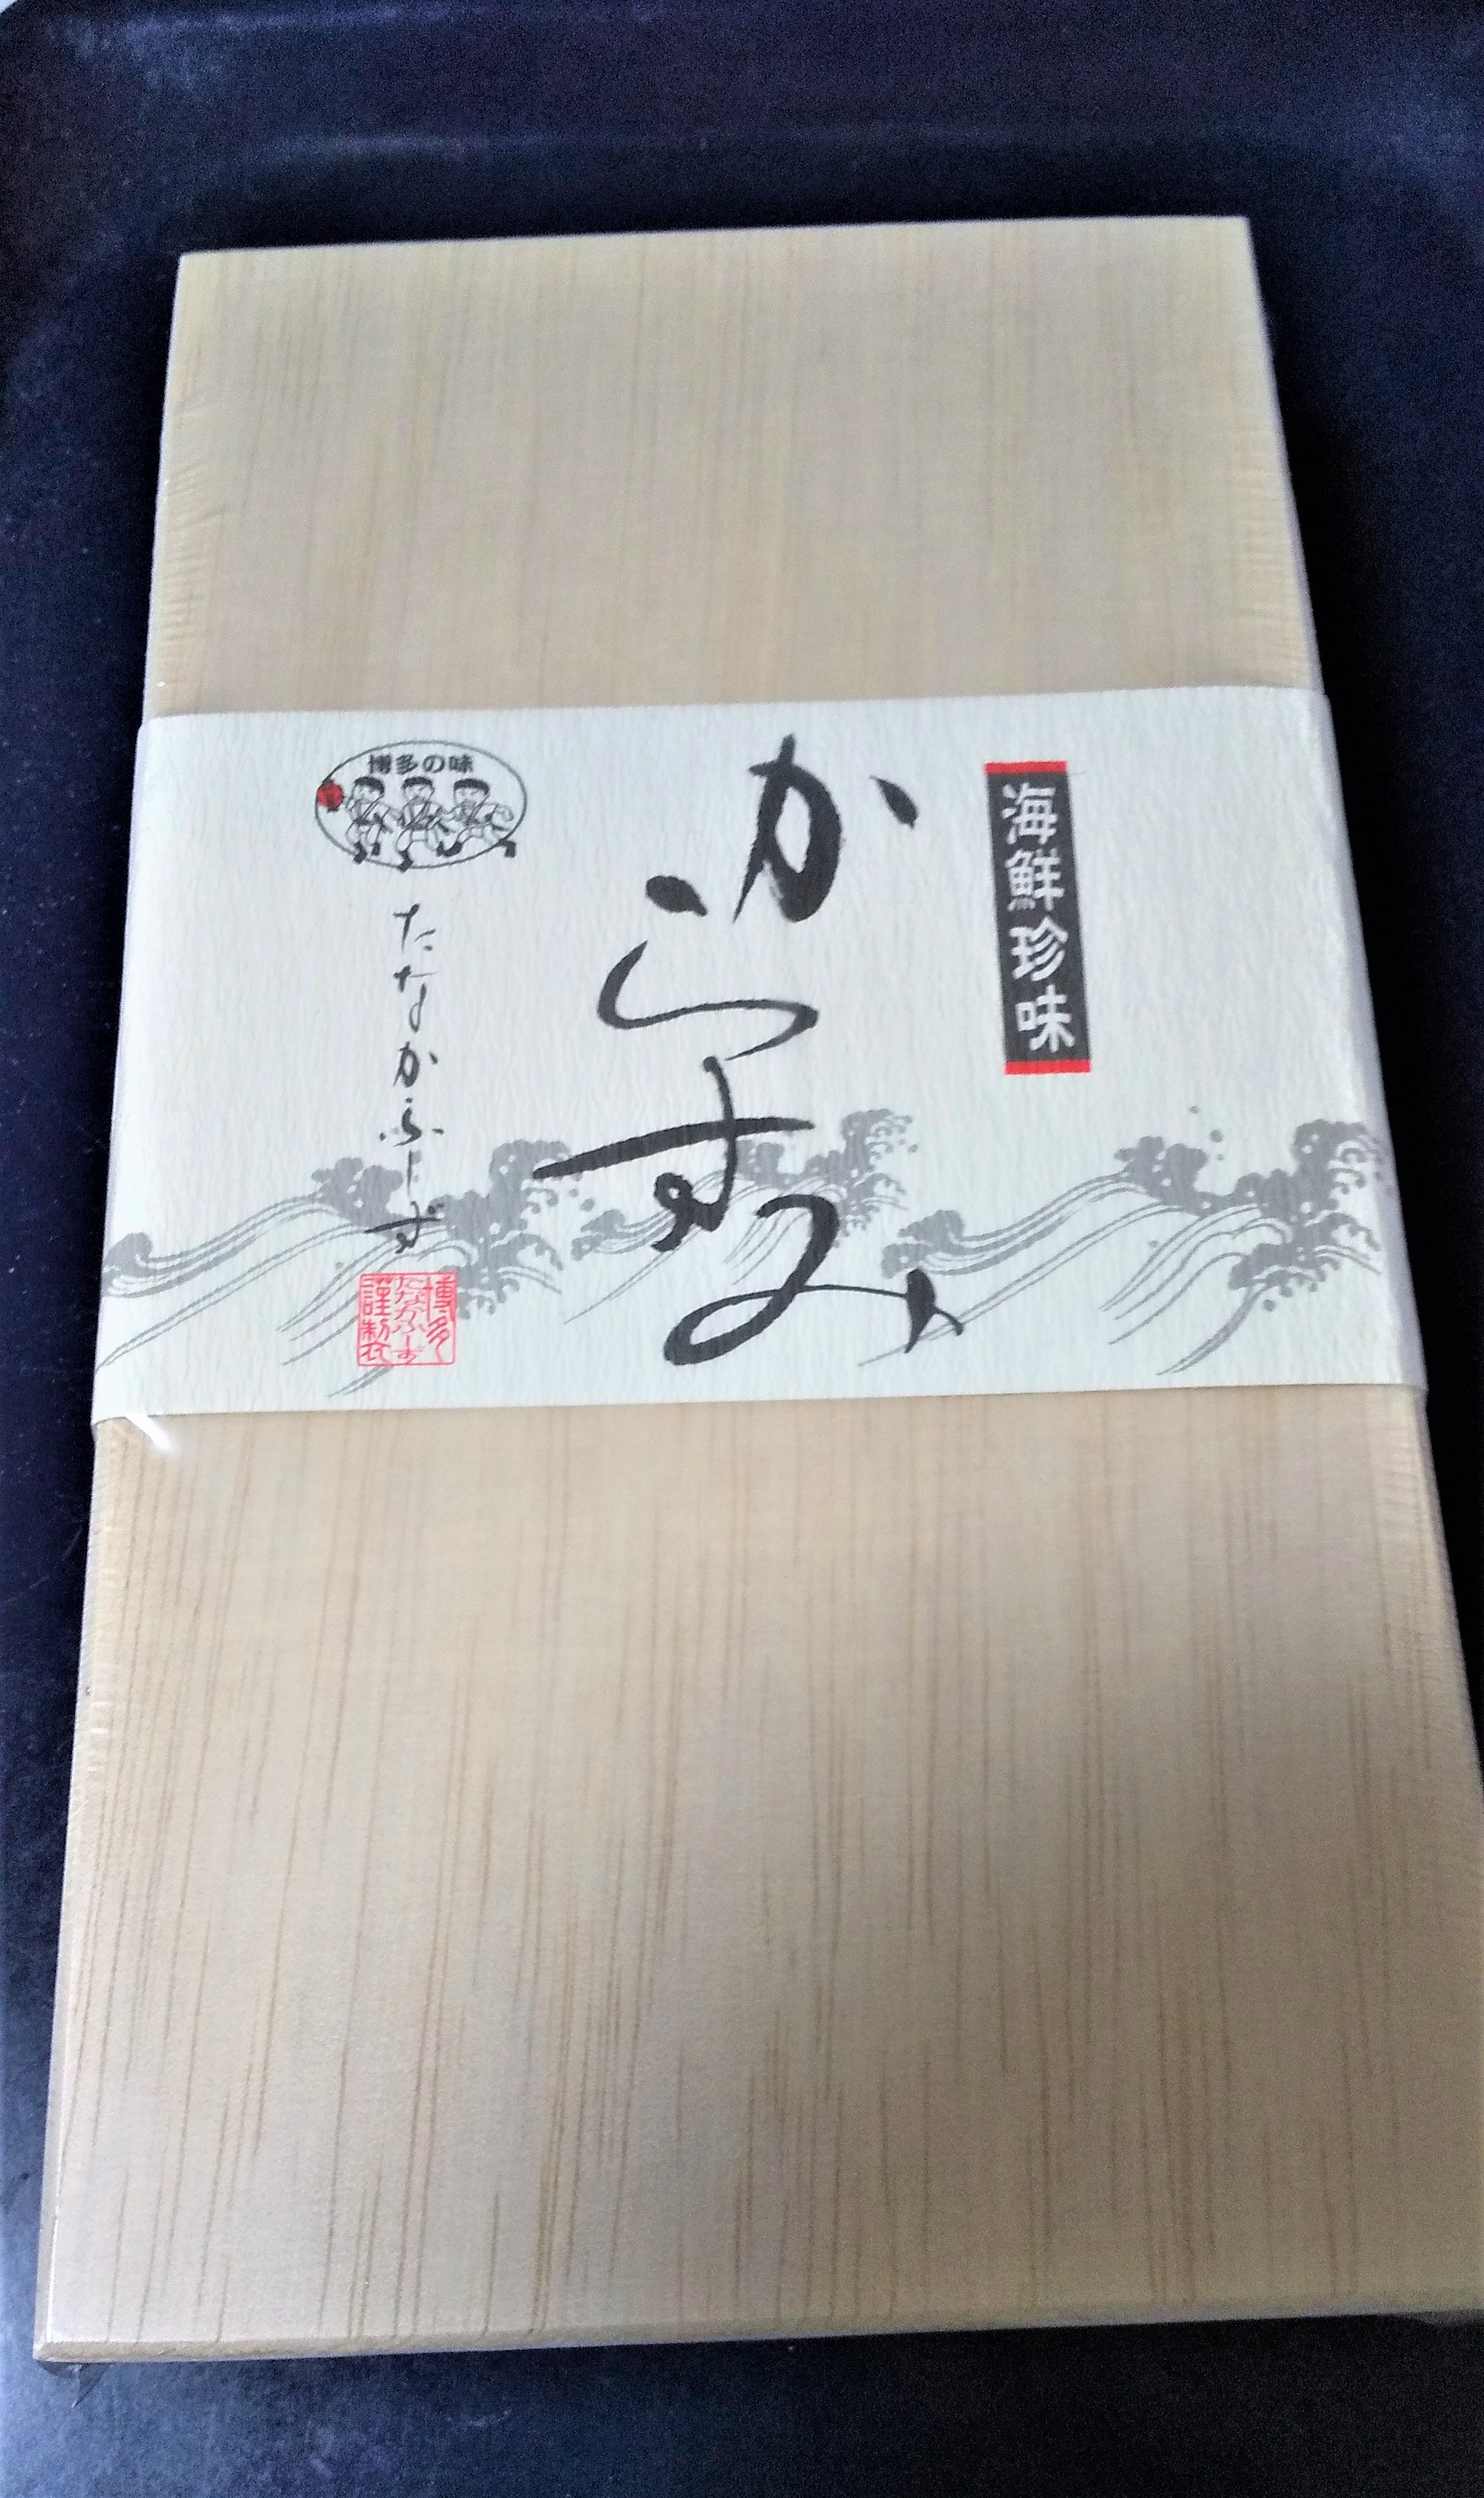 海鮮珍味
からすみ
博多の味
たなかふーず
博多
たなかふーず
謹製